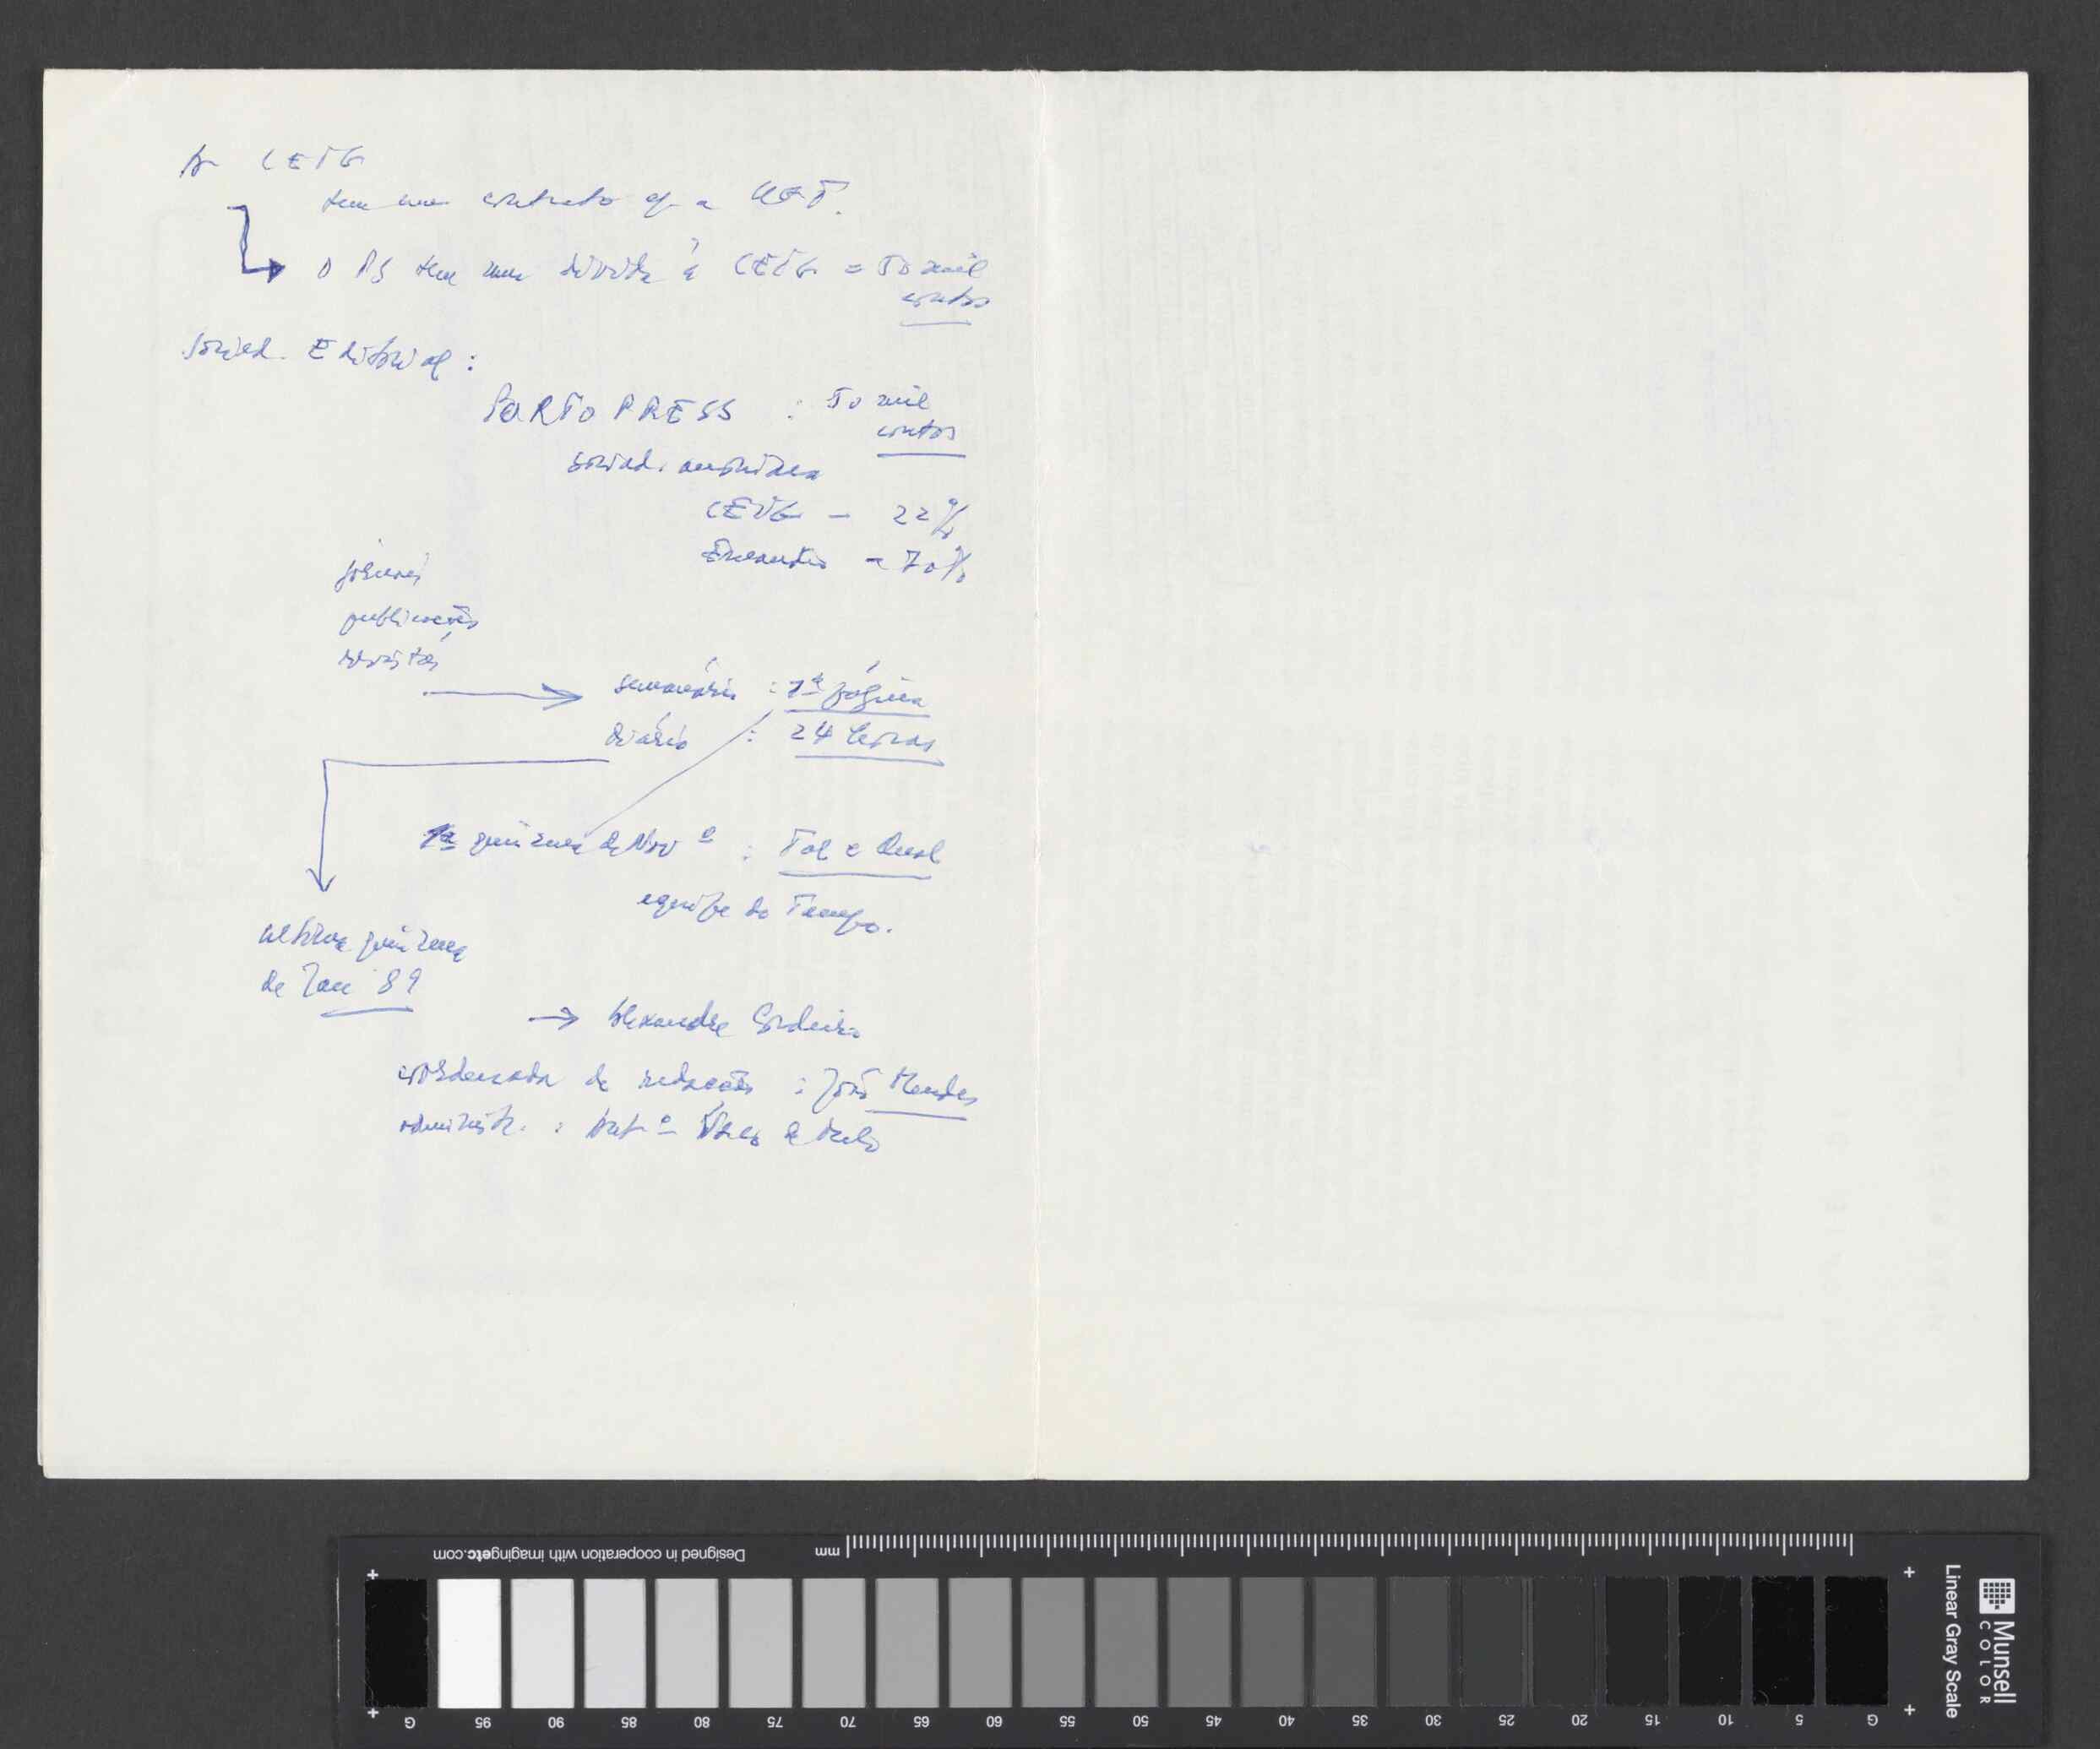 A CEIG
tem um contrato c/ a UGT.
O PS tem uma dívida à CEIG = 50 mil
contos
Socied. Editorial:
PORTO PRESS : 50 mil
contos
socied. anónima
CEIG – 22%
– 70%
jornais
publicações
revistas
semanário : 1ª página
diário : 24 horas
1ª quinzena de Novº : Tal e Qual
equipe do Tempo.
última quinzena
de Jan 89
→ Alexandre Cordeiro
coordenada de redacção : João Mendes
administr. : Antº de Melo
Designed in cooperation with imagingetc.com
mm
G 95 90 85 80 75 70 65 60 55 50 45 40 35 30 25 20 15 10 5 G
Linear Gray Scale
Munsell
COLOR